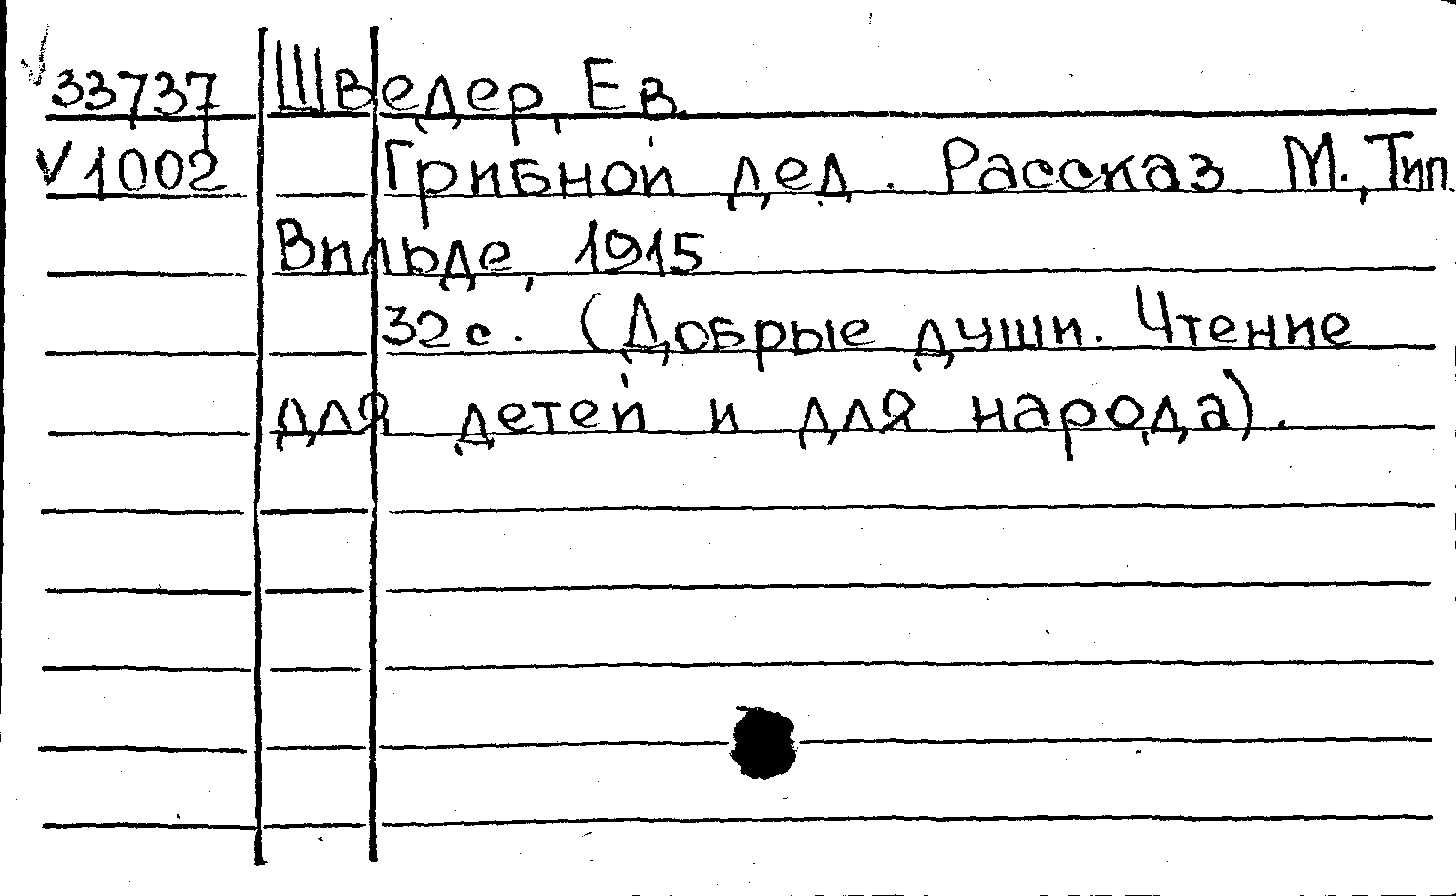 √33737 Шведер, Ев.
V1002 Грибной дед. Рассказ М., Тип.
Вильде, 1915
32 с. (Добрые души. Чтение
для детей и для народа).